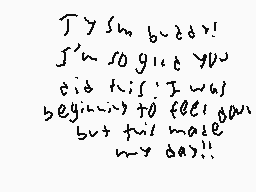 Ty sm buddy!
I'm so glad you
did this! I was
beginning to feel down
but this made
my day!!